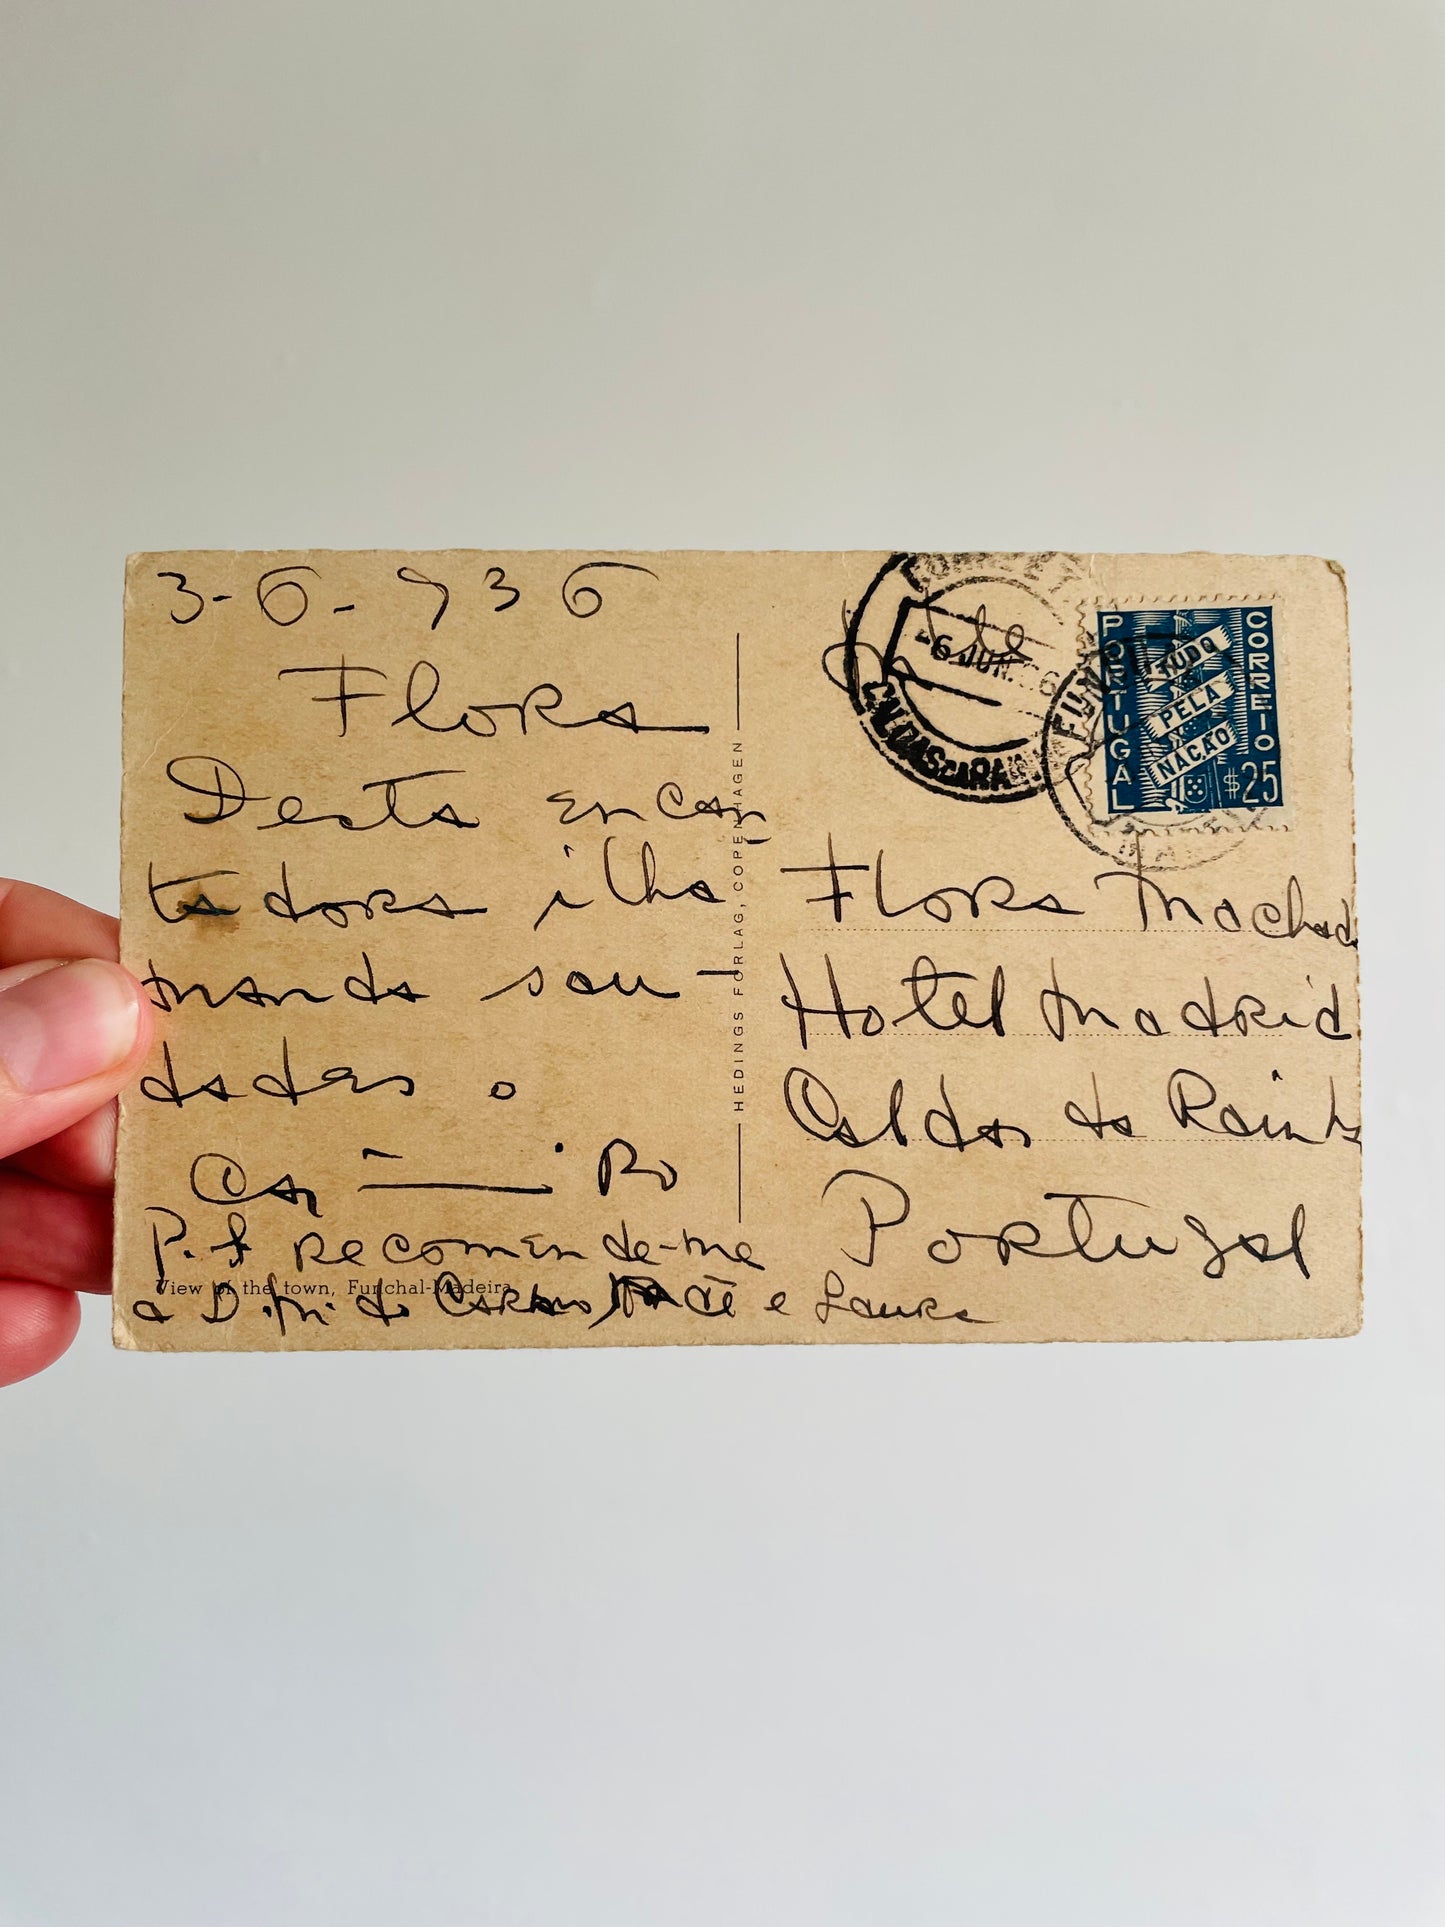 3-6-936
Flora
Desta encan
tadora ilha
manda sau-
dades o
Casimiro
P.S recomende-me
a D. M. do Carmo, Mãe e Laura
View of the town, Funchal-Madeira
HEDINGS FORLAG, COPENHAGEN
-6 JUN. 36
CALDAS DA RAINHA
FUNCHAL
PORTUGAL
CORREIO
TUDO
PELA
NAÇÃO
$25
Flora Machado
Hotel Madrid
Caldas da Rainha
Portugal